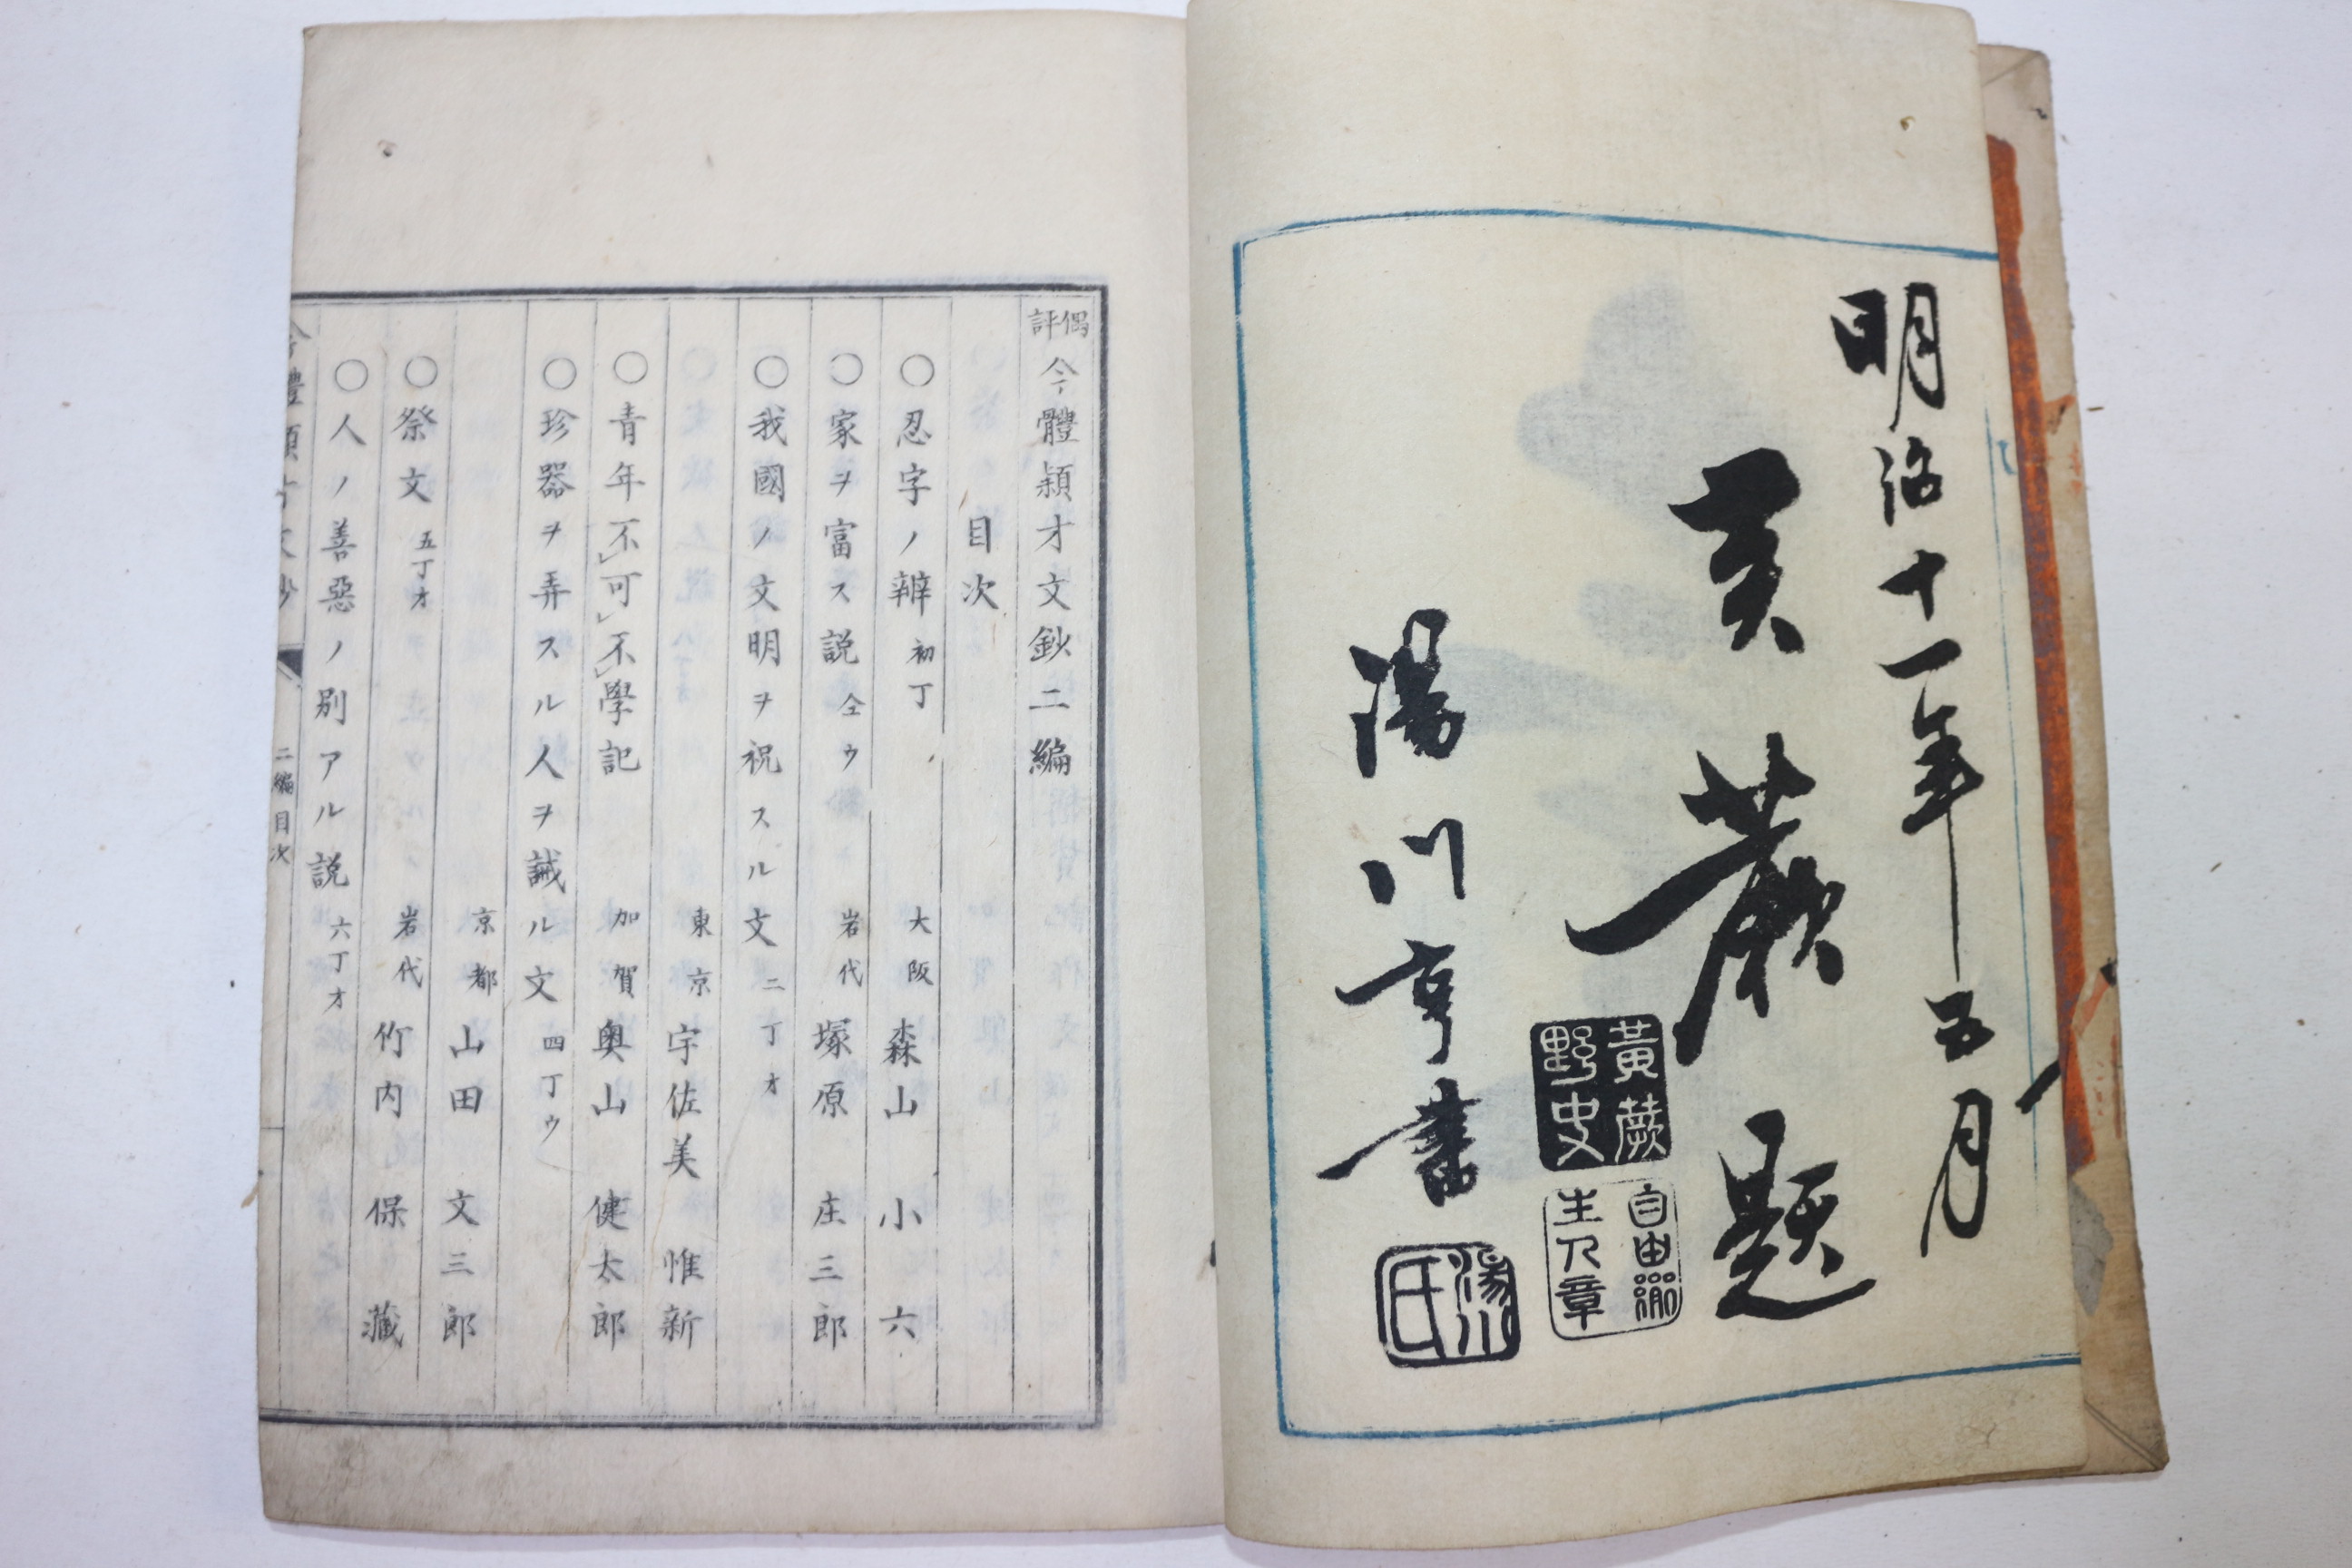 明治十一年五月
黄蕨題
湯川亨書
黃蕨
野史
自由
生人章
湯川
氏
偶評
今體穎才文鈔二編
目次
〇忍字ノ辨 初丁 大阪 森山 小六
〇家ヲ富ス説 仝ウ 岩代 塚原 庄三郎
〇我國ノ文明ヲ祝スル文 二丁オ
東京 宇佐美 惟新
〇青年不可不學記 加賀 奥山 健太郎
〇珍器ヲ弄スル人ヲ誡ル文 四丁ウ
京都 山田 文三郎
〇祭文 五丁オ 岩代 竹内 保藏
〇人ノ善惡ノ別アル説 六丁オ
二編目次